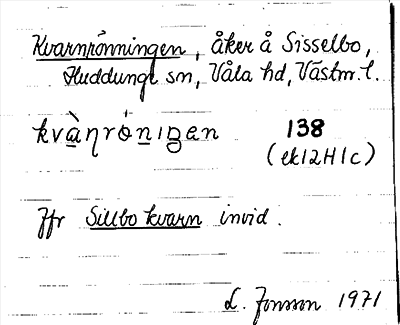 Kvarnrönningen, åker å Sisselbo,
Huddunge sn, Våla hd, Västm. l.
kvànró̱ni̱ŋen 138
(ek12H1c)
Jfr Sillbo kvarn invid.
L. Jonsson 1971